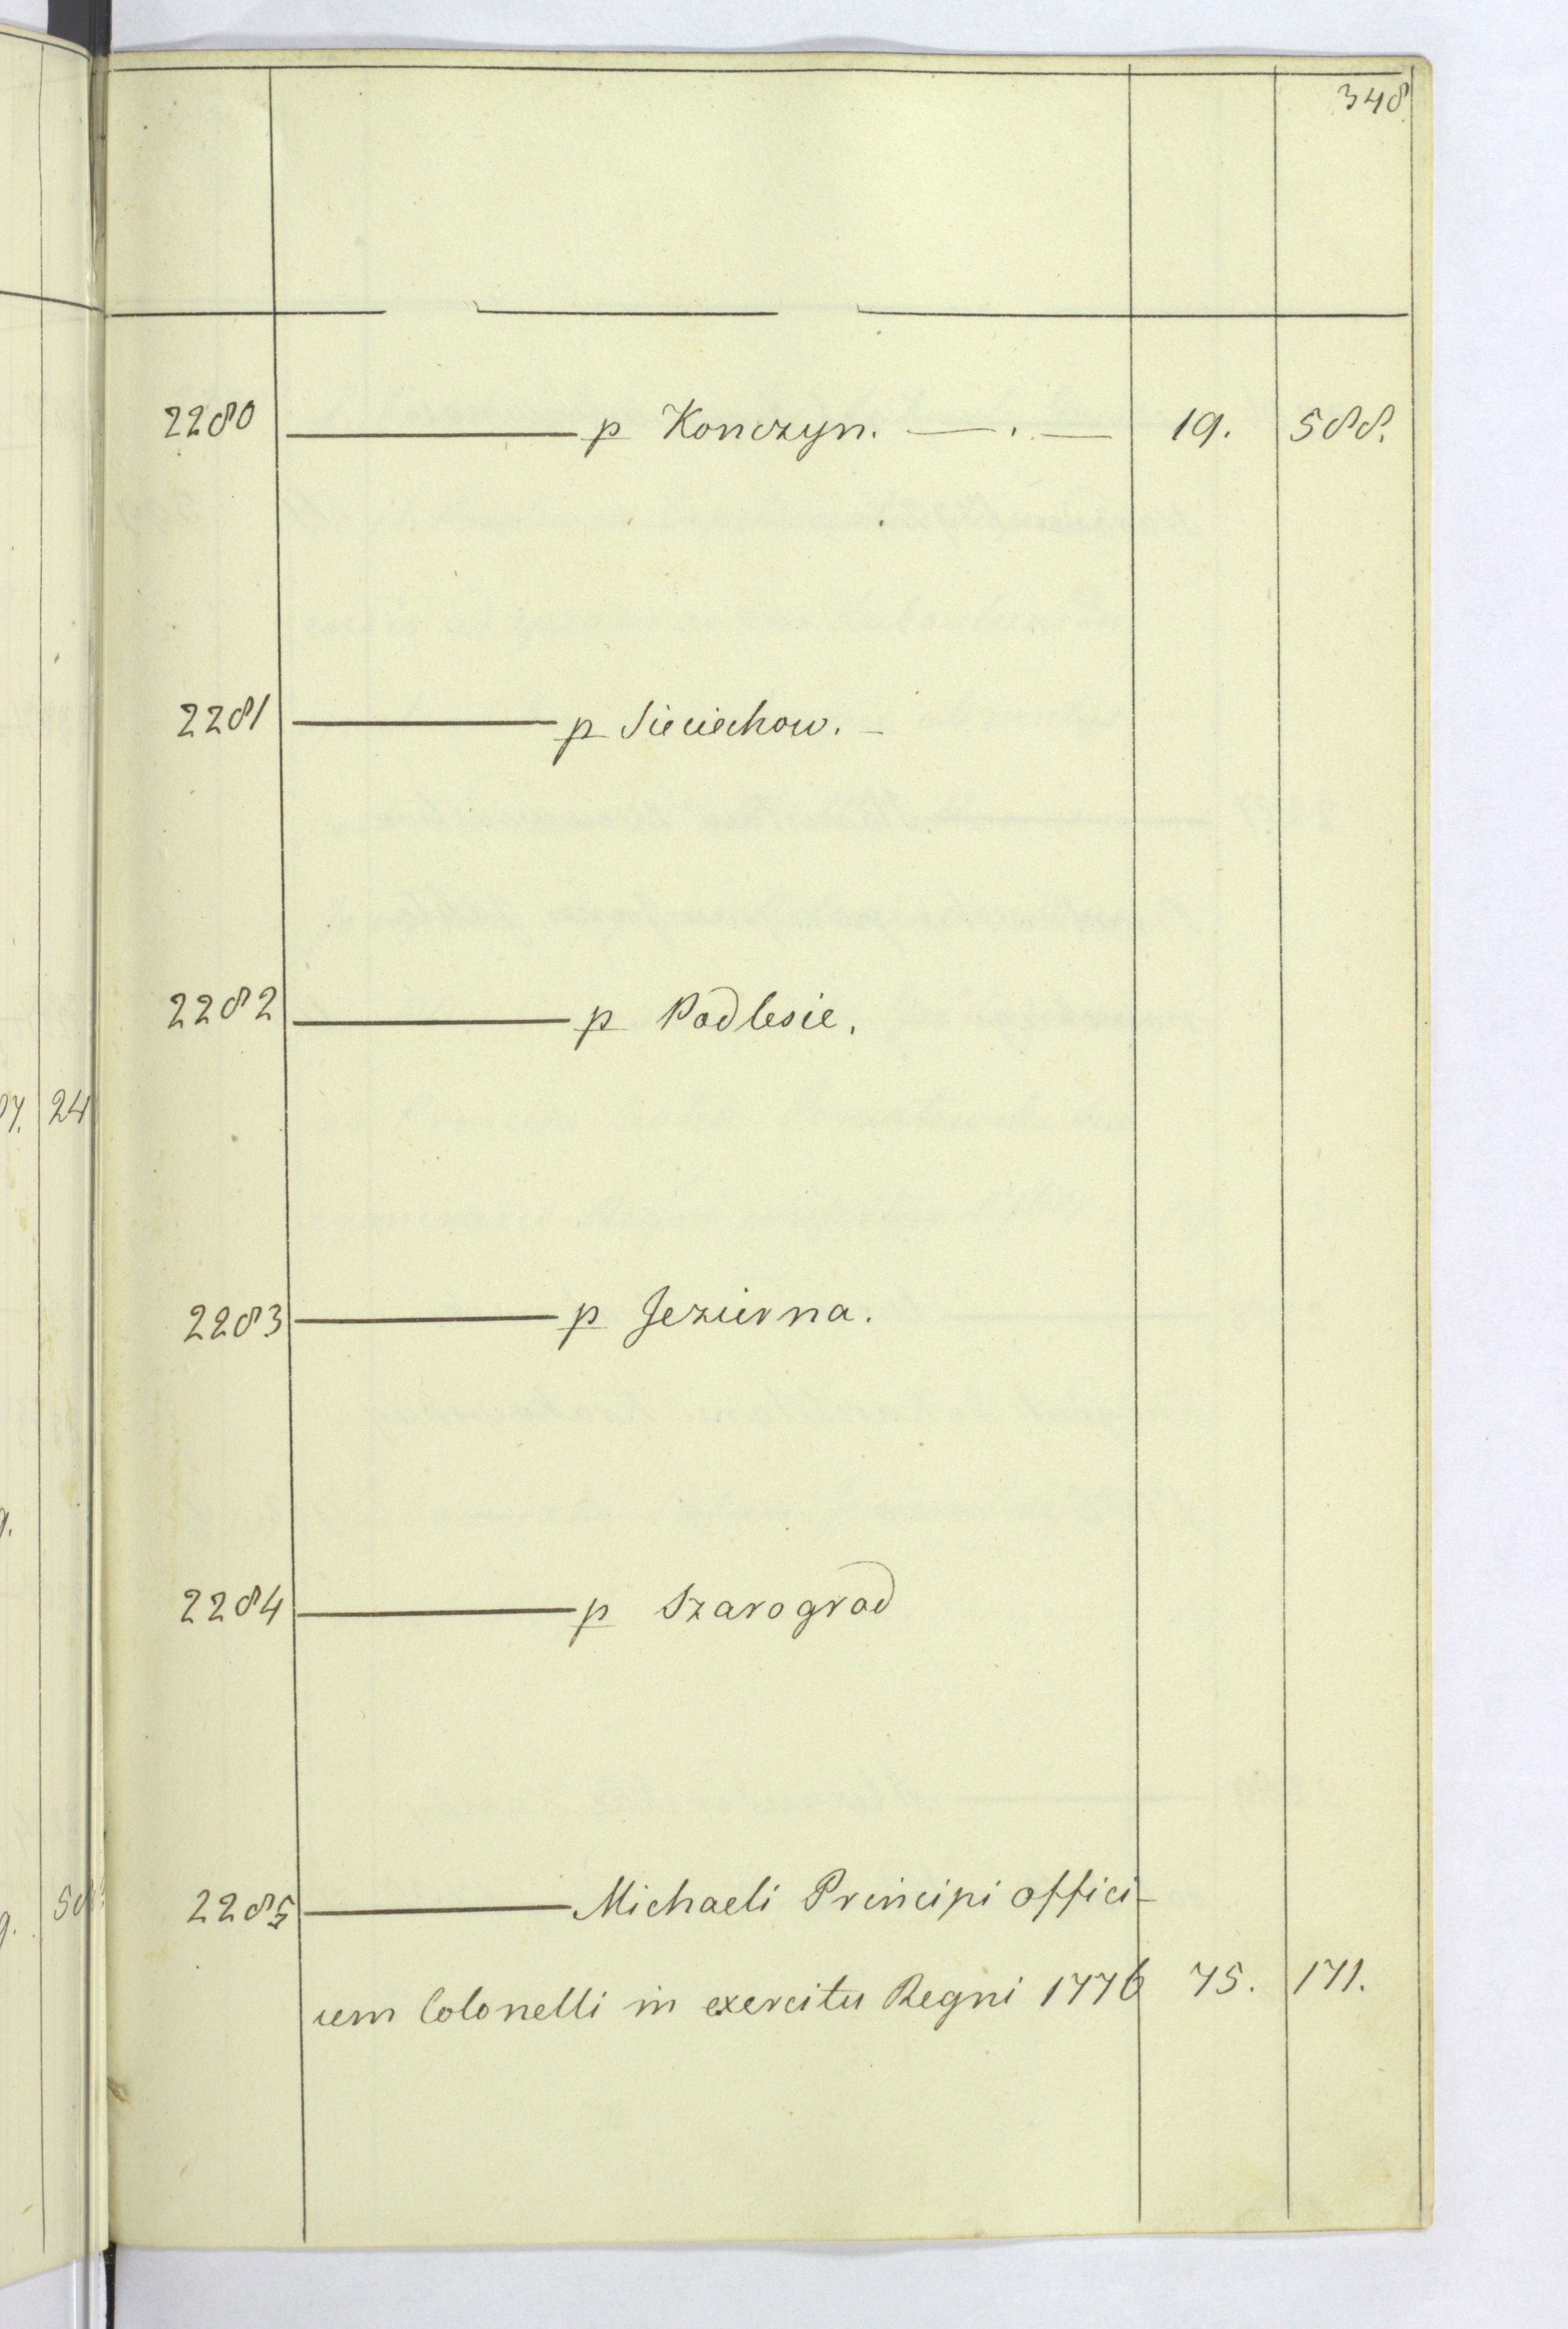 348
2280 ——— p Konczyn. — . — 19. 588.
2281 ——— p Sieciechow. –
2282 ——— p Podlesie.
2283 ——— p Jezierna.
2284 ——— p Szarograd
2285 ——— Michaeli Principi offici-
um Colonelli in exercitu Regni 1776 75. 171.
24